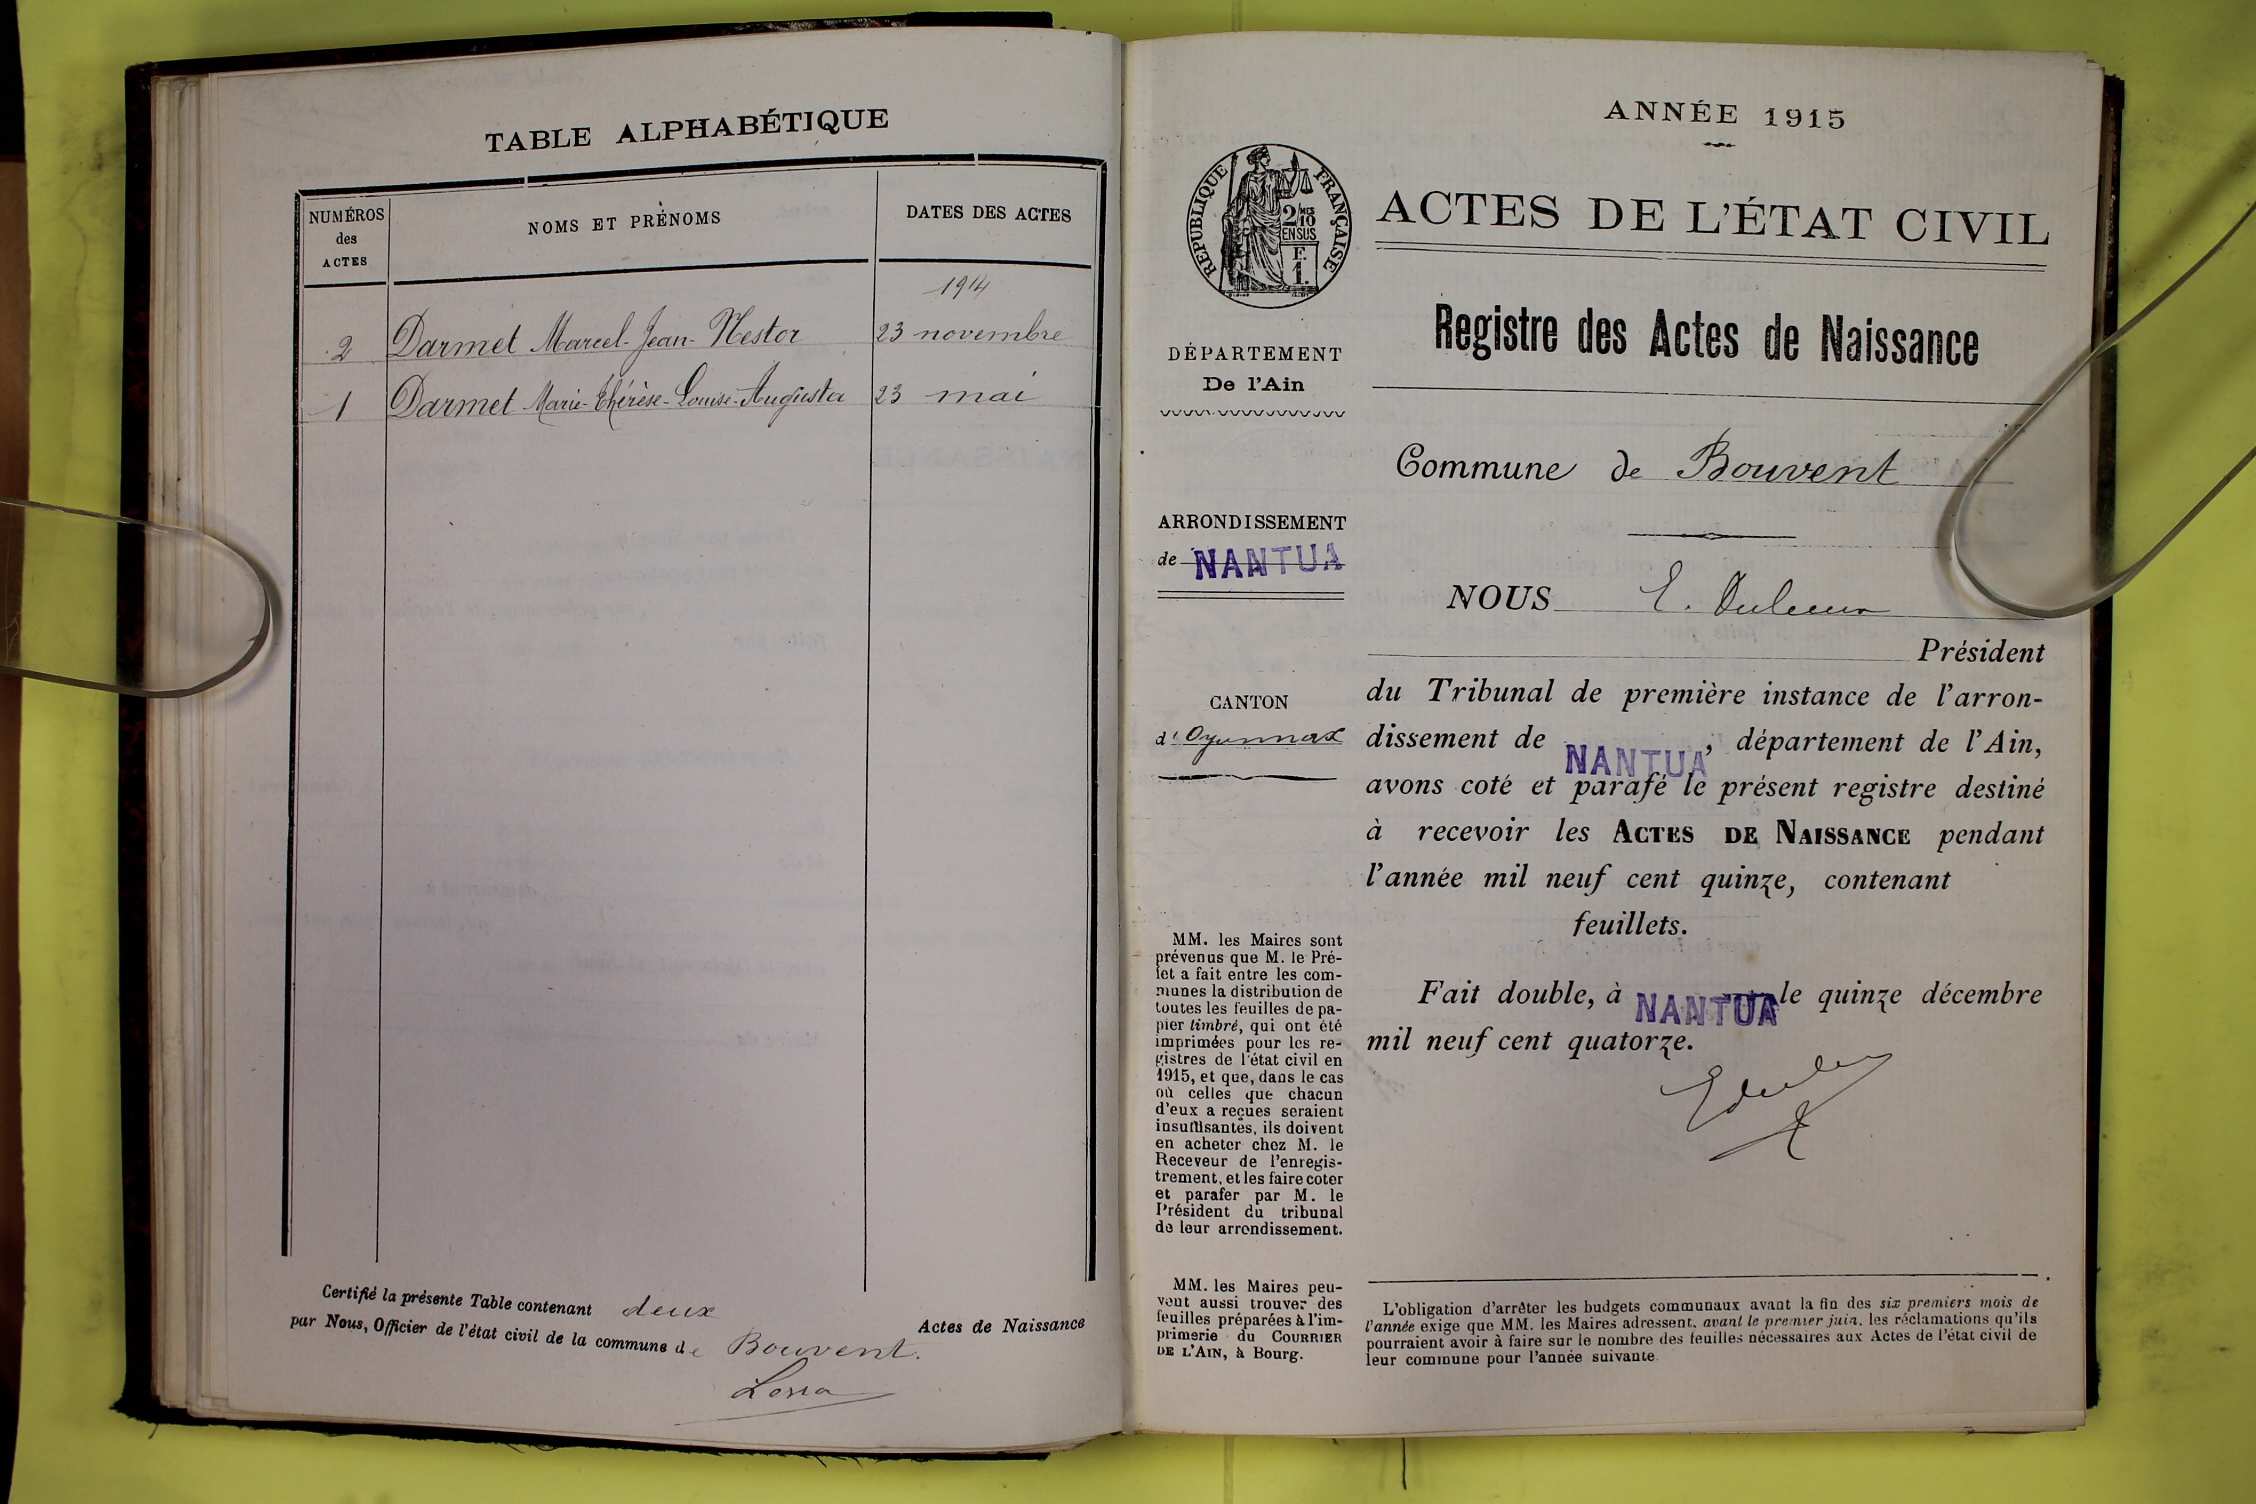 TABLE ALPHABÉTIQUE
NUMÉROS
des
ACTES
NOMS ET PRÉNOMS
DATES DES ACTES
1914
2 Darmet Marcel-Jean-Nestor 23 novembre
1 Darmet Marie-Thérèse-Louise-Augusta 23 mai
Certifié la présente Table contenant deux
par Nous, Officier de l'état civil de la commune de Bouvent.
Actes de Naissance
ANNÉE 1915
RÉPUBLIQUE FRANÇAISE
2/MES
10
EN SUS
F.
1.
DÉPARTEMENT
De l'Ain
ARRONDISSEMENT
de NANTUA
CANTON
d'Oyonnax
MM. les Maires sont
prévenus que M. le Pré-
fet a fait entre les com-
munes la distribution de
toutes les feuilles de pa-
pier timbré, qui ont été
imprimées pour les re-
gistres de l'état civil en
1915, et que, dans le cas
où celles que chacun
d'eux a reçues seraient
insuffisantes, ils doivent
en acheter chez M. le
Receveur de l'enregis-
trement, et les faire coter
et parafer par M. le
Président du tribunal
de leur arrondissement.
MM. les Maires peu-
vent aussi trouver des
feuilles préparées à l'im-
primerie du COURRIER
DE L'AIN, à Bourg.
ACTES DE L'ÉTAT CIVIL
Registre des Actes de Naissance
Commune de Bouvent
NOUS E.
Président
du Tribunal de première instance de l'arron-
dissement de NANTUA, département de l'Ain,
avons coté et parafé le présent registre destiné
à recevoir les ACTES DE NAISSANCE pendant
l'année mil neuf cent quinze, contenant
feuillets.
Fait double, à NANTUA le quinze décembre
mil neuf cent quatorze.
L'obligation d'arrêter les budgets communaux avant la fin des six premiers mois de
l'année exige que MM. les Maires adressent, avant le premier juin, les réclamations qu'ils
pourraient avoir à faire sur le nombre des feuilles nécessaires aux Actes de l'état civil de
leur commune pour l'année suivante.